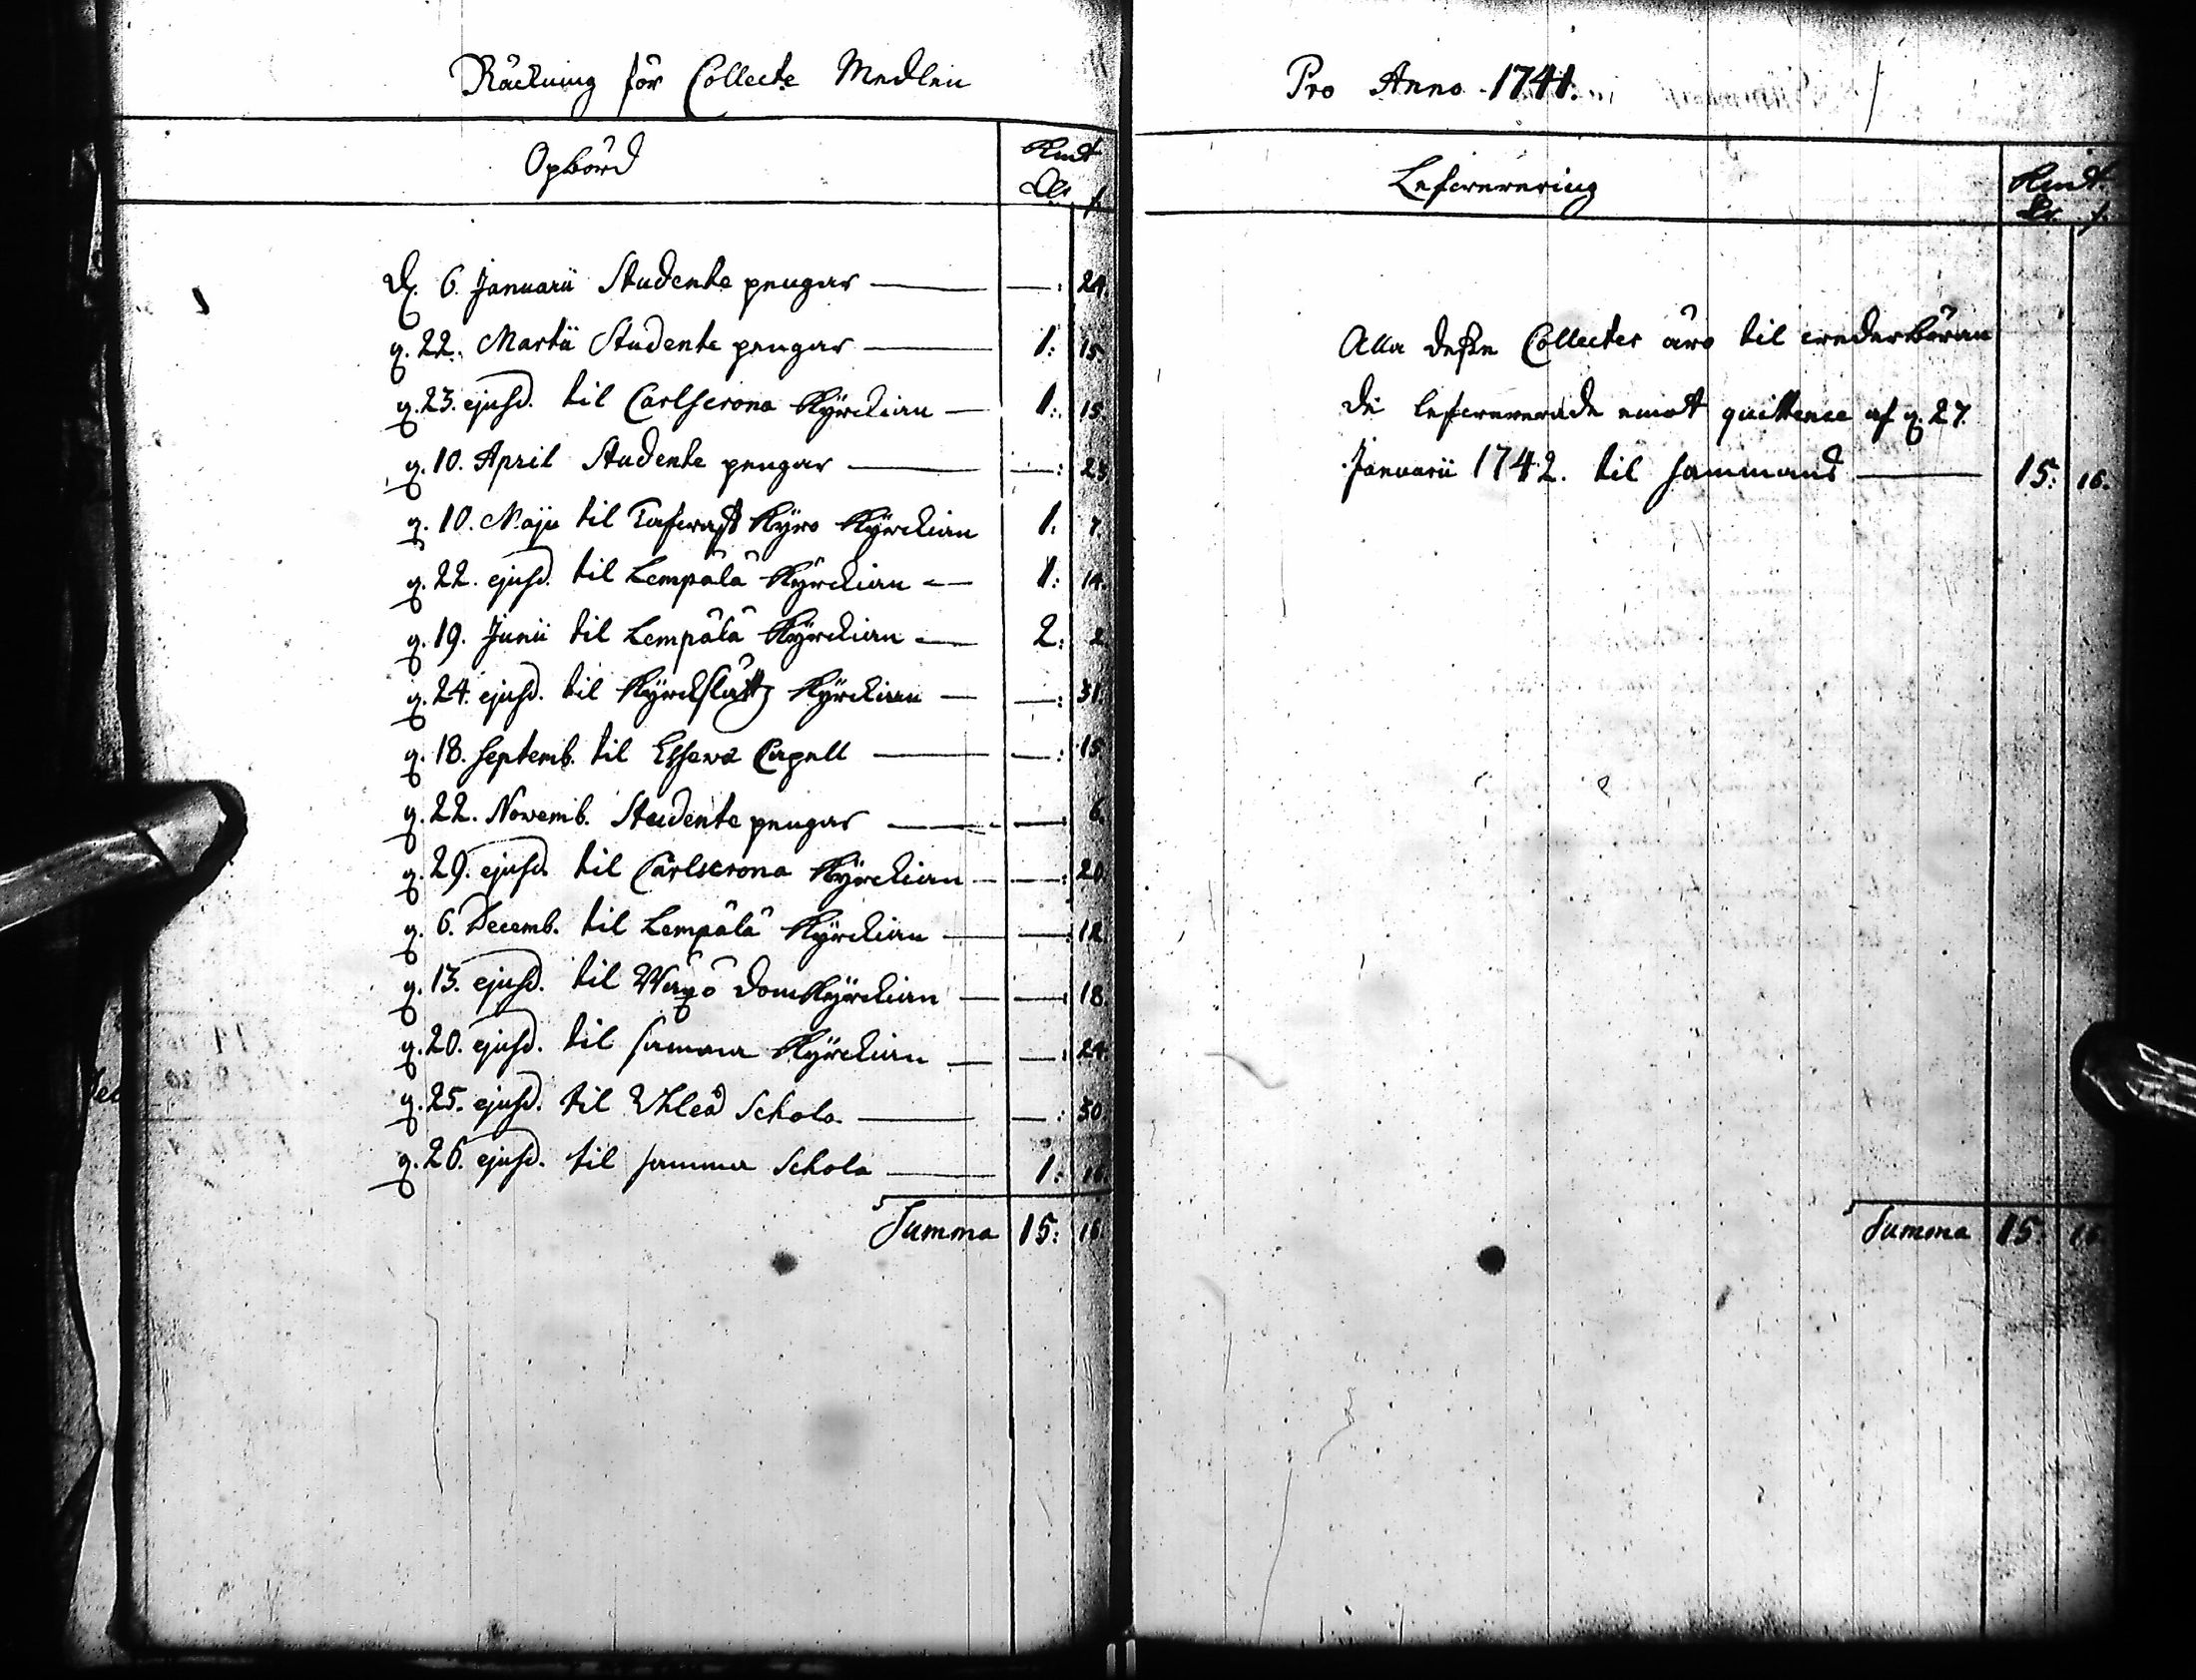 Räckning för Collecte Medlen
Opbörd
Kmt
Dlr
d. 6. Januarii Studente pengar — : 24.
q. 22. Martii Studente pengar — 1: 15.
q. 23. ejusd. til Carlscrona Kyrckian — 1: 15.
q. 10. April Studente pengar — : 23.
q. 10. Maju til Tafwast Kyro Kyrckian 1. 7.
q. 22. ejusd. til Lempälä Kyrckian — 1: 14.
q. 19. Junii til Lempälä Kyrckian — 2: 2.
q. 24. ejusd. til Kyrckslätts Kyrckian — : 31.
q. 18. Septemb. til Capell — : 15.
q. 22. Novemb. Studente pengar — : 6.
q. 29. ejusd. til Carlscrona Kyrckian — : 20.
q. 6. Decemb. til Lempälä Kyrckian — : 12.
q. 13. ejusd. til Wäxö DomKyrckian — : 18.
q. 20. ejusd. til samma Kyrckian — : 24.
q. 25. ejusd. til Uhleå Schola — : 30.
q. 26. ejusd. til samma Schola — 1: 16.
Summa 15: 16.
Pro Anno 1741.
Lefwerering
Kmt.
Dr.
Alla desse Collecter äro til wederböran
de lefwererade emot quittence af q. 27.
Januarii 1742. til sammans — 15: 16.
Summa 15: 16.